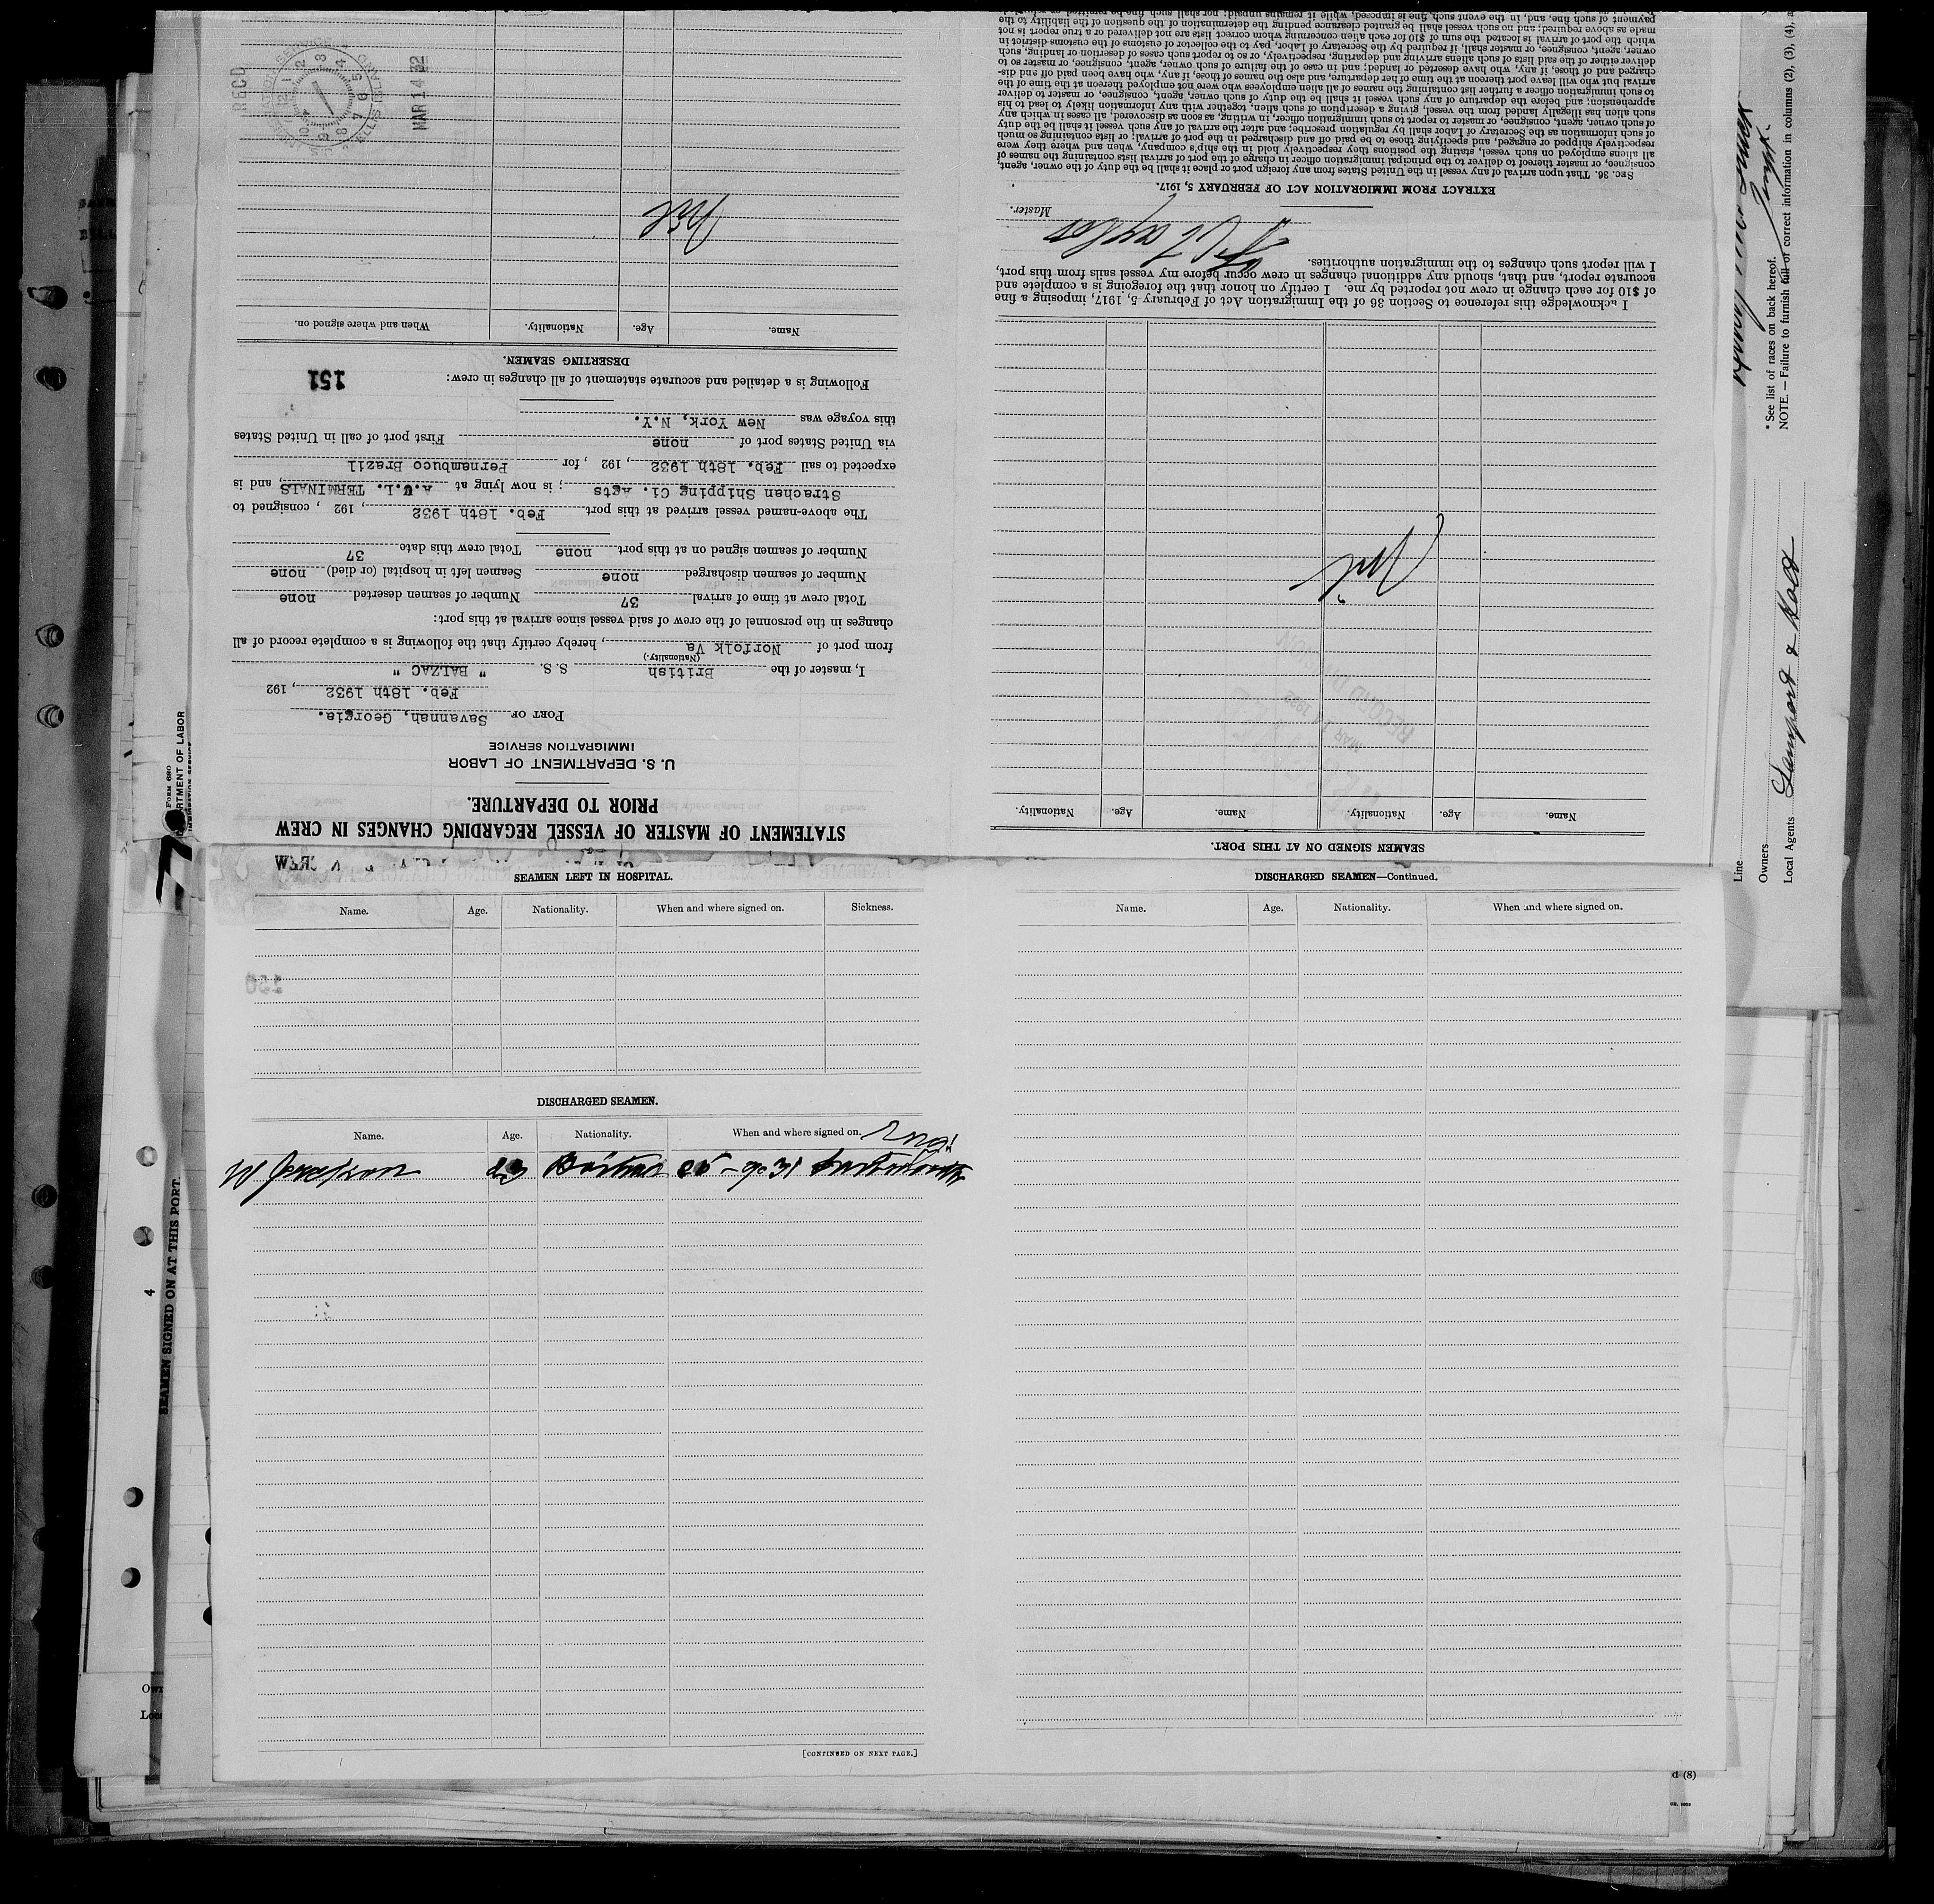 STATEMENT OF MASTER OF VESSEL REGARDING CHANGES IN CREW
PRIOR TO DEPARTURE.
U. S. DEPARTMENT OF LABOR
IMMIGRATION SERVICE
PORT OF Savannah, Georgia.
Feb. 18th 1932, 192
I, master of the British S. S. " BALZAC "
(Nationality.)
from port of Norfolk Va, hereby certify that the following is a complete record of all
changes in the personnel of the crew of said vessel since arrival at this port:
Total crew at time of arrival 37 Number of seamen deserted none
Number of seamen discharged none Seamen left in hospital (or died) none
Number of seamen signed on at this port none Total crew this date 37
The above-named vessel arrived at this port Feb. 18th 1932, 192 , consigned to
Strachan Shipping Ci. Agts ; is now lying at A.C.L. TERMINALS, and is
expected to sail Feb. 18th 1932, 192 , for Pernambuco Brazil
via United States port of none First port of call in United States
this voyage was New York, N.Y.
Following is a detailed and accurate statement of all changes in crew:
151
DESERTING SEAMEN.
Name. Age. Nationality. When and where signed on.
Nil
REC'D
MAR 14 32
ELLIS ISLAND
SEAMEN SIGNED ON AT THIS PORT.
Name. Age. Nationality. Name. Age. Nationality.
RECORD DIVISION
MAR 14 1932
Nil
I acknowledge this reference to Section 36 of the Immigration Act of February 5, 1917, imposing a fine
of $10 for each change in crew not reported by me. I certify on honor that the foregoing is a complete and
accurate report, and that, should any additional changes in crew occur before my vessel sails from this port,
I will report such changes to the immigration authorities.
Master.
EXTRACT FROM IMMIGRATION ACT OF FEBRUARY 5, 1917.
SEC. 36. That upon arrival of any vessel in the United States from any foreign port or place it shall be the duty of the owner, agent,
consignee, or master thereof to deliver to the principal immigration officer in charge of the port of arrival lists containing the names of
all aliens employed on such vessel, stating the positions they respectively hold in the ship's company, when and where they were
respectively shipped or engaged, and specifying those to be paid off and discharged in the port of arrival; or lists containing so much
of such information as the Secretary of Labor shall by regulation prescribe; and after the arrival of any such vessel it shall be the duty
of such owner, agent, consignee, or master to report to such immigration officer, in writing, as soon as discovered, all cases in which any
such alien has illegally landed from the vessel, giving a description of such alien, together with any information likely to lead to his
apprehension; and before the departure of any such vessel it shall be the duty of such owner, agent, consignee, or master to deliver
to such immigration officer a further list containing the names of all alien employees who were not employed thereon at the time of the
arrival but who will leave port thereon at the time of her departure, and also the names of those, if any, who have been paid off and dis-
charged and of those, if any, who have deserted or landed; and in case of the failure of such owner, agent, consignee, or master so to
deliver either of the said lists of such aliens arriving and departing, respectively, or so to report such cases of desertion or landing, such
owner, agent, consignee, or master shall, if required by the Secretary of Labor, pay to the collector of customs of the customs district in
which the port of arrival is located the sum of $10 for each alien concerning whom correct lists are not delivered or a true report is not
made as above required; and no such vessel shall be granted clearance pending the determination of the question of the liability to the
payment of such fine, and, in the event such fine is imposed, while it remains unpaid; nor shall such fine be remitted or
SEAMEN LEFT IN HOSPITAL.
Name. Age. Nationality. When and where signed on. Sickness.
DISCHARGED SEAMEN.
Name. Age. Nationality. When and where signed on.
W Jackson 23 British
[CONTINUED ON NEXT PAGE.]
DISCHARGED SEAMEN—Continued.
Name. Age. Nationality. When and where signed on.
FORM 680
SEAMEN SIGNED ON AT THIS PORT.
4
Line
Owners
Local Agents Lamport & Holt
* See list of races on back hereof.
NOTE. — Failure to furnish full or correct information in columns (2), (3), (4),
d (8)